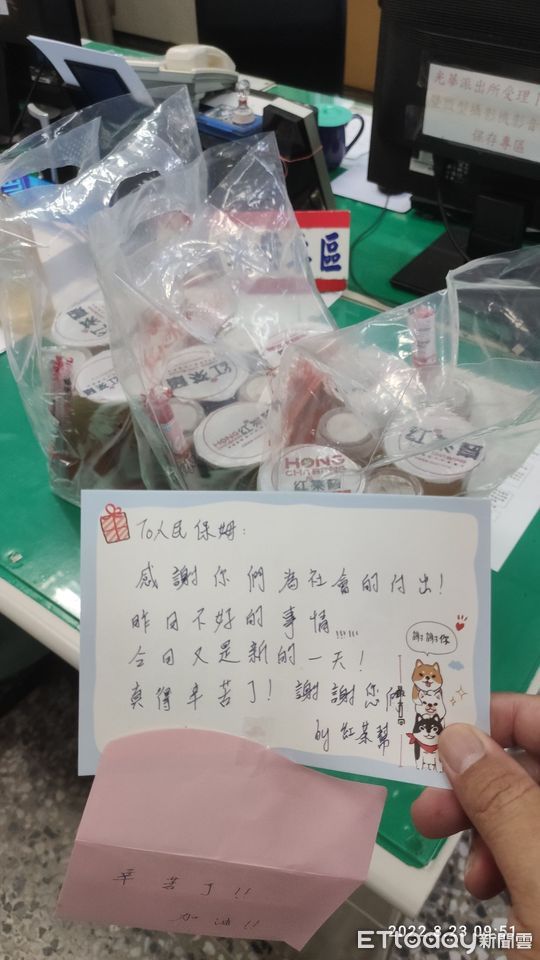 光華派出所受理
保存專區
區
紅茶幫
HONG
CHA
紅茶幫
To人民保姆:
感謝你們為社會的付出!
昨日不好的事情,,,,,,
今日又是新的一天!
真得辛苦了! 謝謝您們
by 紅茶幫
謝謝你
辛苦了!!
加油!!
2022.8.23 09:51
ETtoday新聞雲